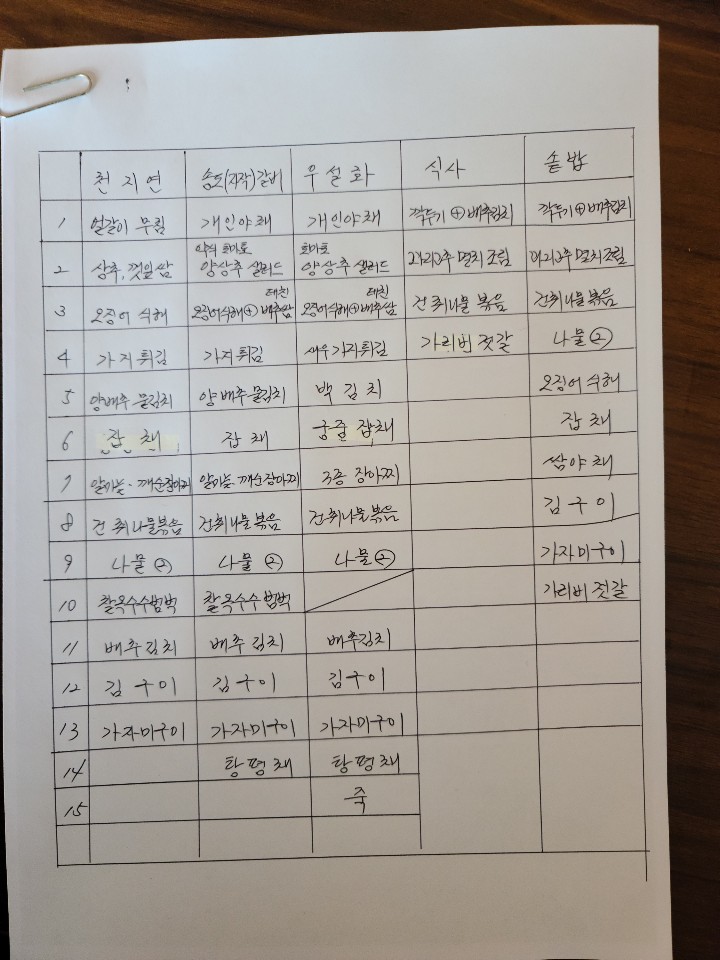 천지연 송도(자작)갈비 우설화 식사 솥밥
1 얼갈이 무침 개인야채 개인야채 깍두기 ⊕ 배추김치 깍두기 ⊕ 배추김치
토마토 토마토
2 상추, 깻잎쌈 양상추 샐러드 양상추 샐러드 꽈리고추 멸치 조림 꽈리고추 멸치조림
데친 데친
3 오징어 식해 오징어식해 ⊕ 배추쌈 오징어식해 ⊕ 배추쌈 건취나물 볶음 건취나물 볶음
4 가지튀김 가지튀김 새우가지튀김 가리비 젓갈 나물 ②
5 양배추 물김치 양배추 물김치 백김치 오징어 식해
6 잡채 잡채 궁중 잡채 잡채
7 알마늘·깨순장아찌 알마늘·깨순장아찌 3종 장아찌 쌈야채
8 건취나물볶음 건취나물볶음 건취나물볶음 김구이
9 나물 ② 나물 ② 나물 ② 가자미구이
10 찰옥수수범벅 찰옥수수범벅 가리비 젓갈
11 배추김치 배추김치 배추김치
12 김구이 김구이 김구이
13 가자미구이 가자미구이 가자미구이
14 탕평채 탕평채
15 죽